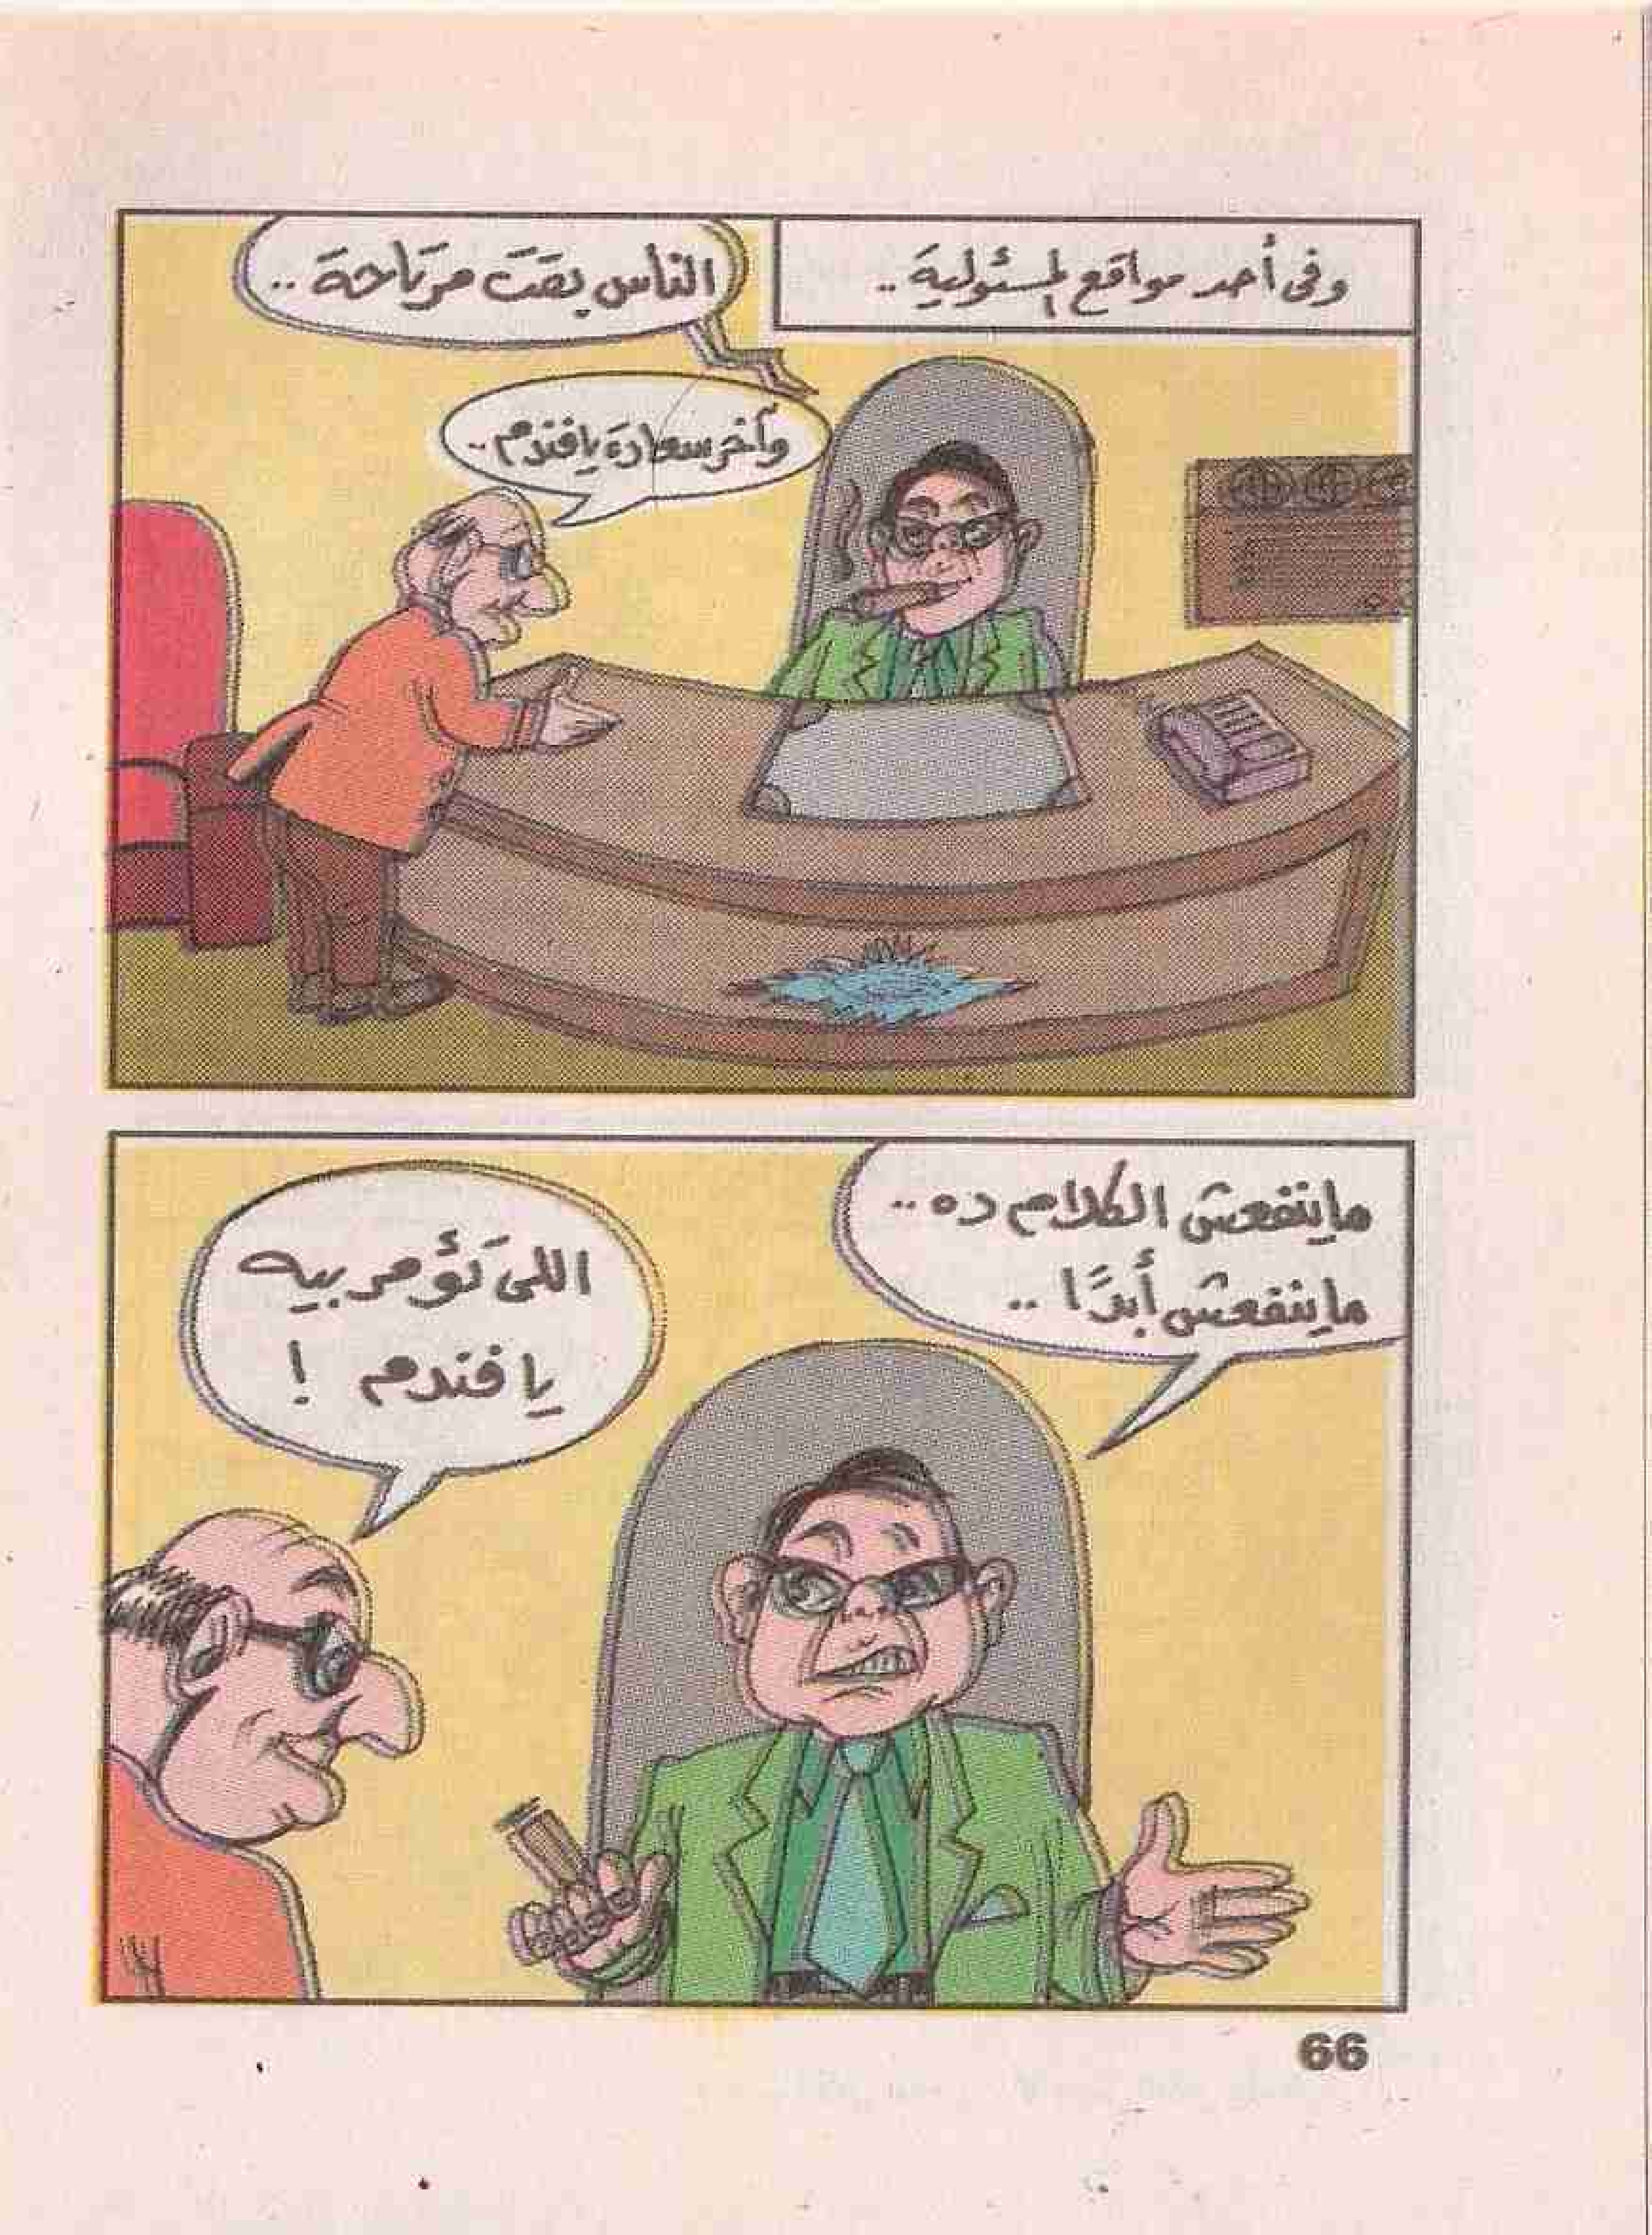 وفى أحد مواقع المسئولية..
الناس بقت مرتاحة..
وآخر سعادة يا فندم..
ما ينفعش الكلام ده..
ما ينفعش أبدًا..
اللى تؤمر بيه
يا فندم !
66